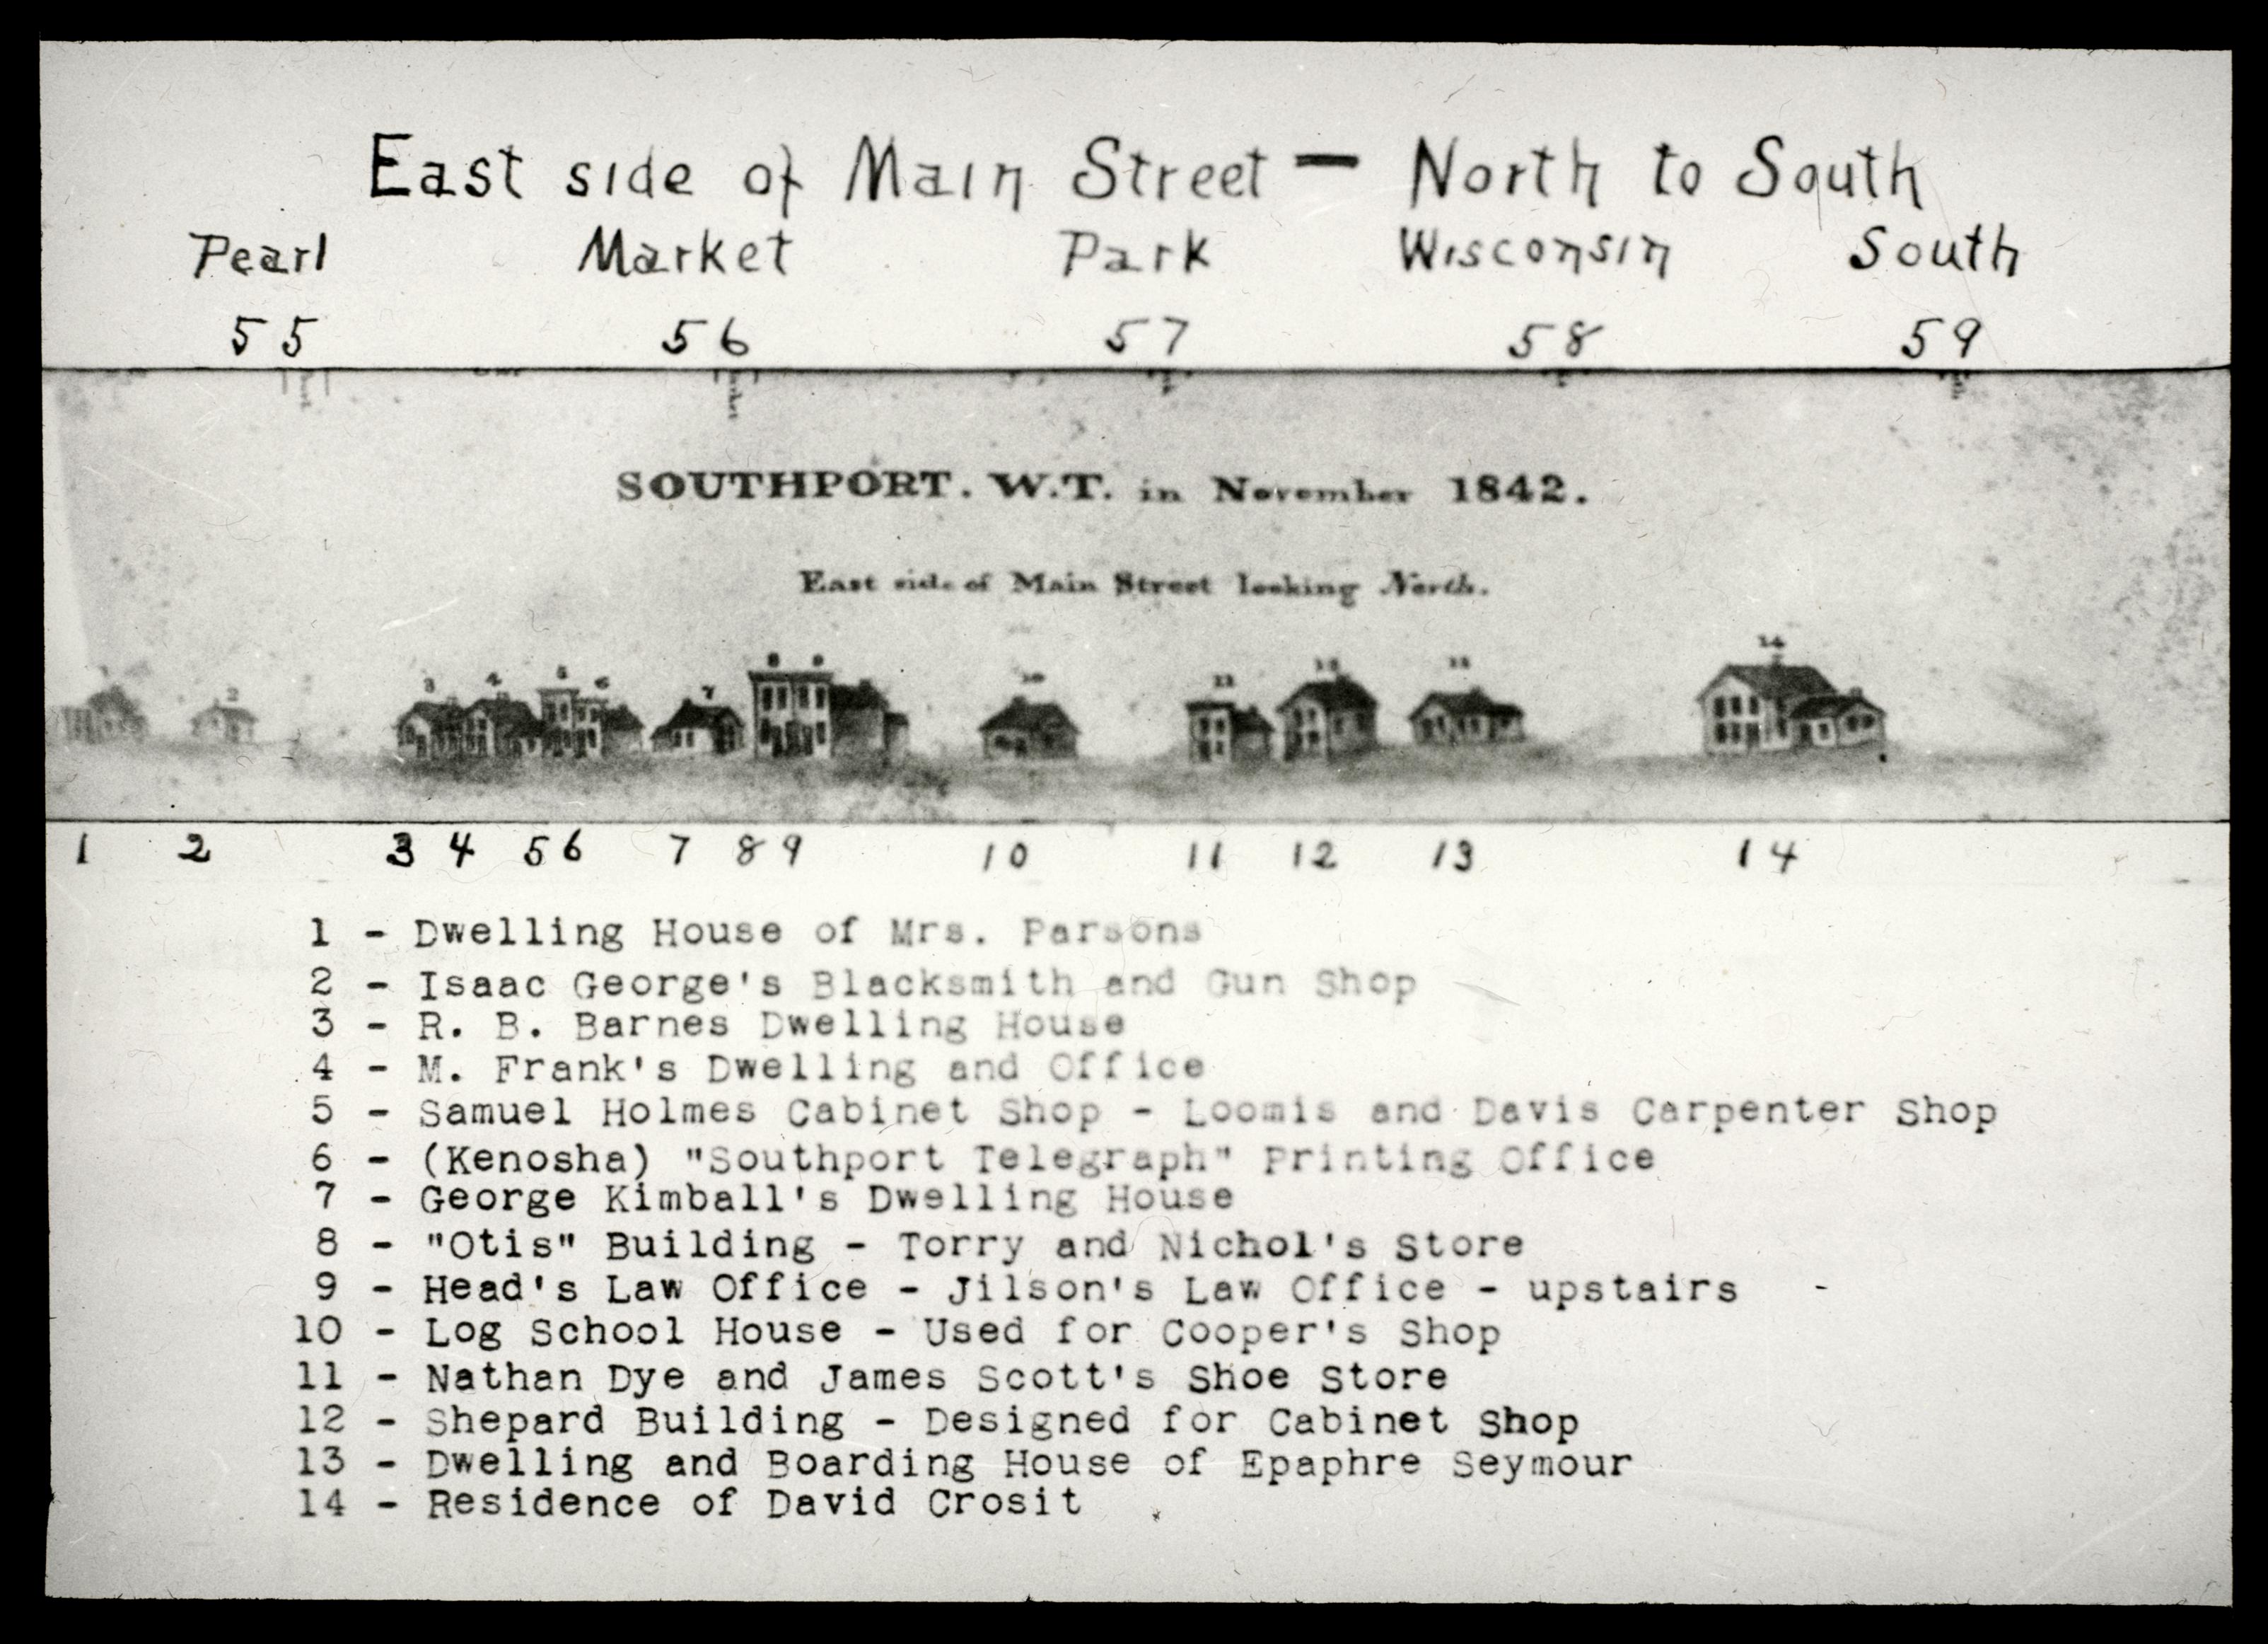 East side of Main Street — North to South
Pearl Market Park Wisconsin South
55 56 57 58 59
SOUTHPORT. W.T. in November 1842.
East side of Main Street looking North.
2 3 4 5 6 7 8 9 10 11 12 13 14
1 2 3 4 5 6 7 8 9 10 11 12 13 14
1 - Dwelling House of Mrs. Parsons
2 - Isaac George's Blacksmith and Gun Shop
3 - R. B. Barnes Dwelling House
4 - M. Frank's Dwelling and Office
5 - Samuel Holmes Cabinet Shop - Loomis and Davis Carpenter Shop
6 - (Kenosha) "Southport Telegraph" Printing Office
7 - George Kimball's Dwelling House
8 - "Otis" Building - Torry and Nichol's Store
9 - Head's Law Office - Jilson's Law Office - upstairs -
10 - Log School House - Used for Cooper's Shop
11 - Nathan Dye and James Scott's Shoe Store
12 - Shepard Building - Designed for Cabinet Shop
13 - Dwelling and Boarding House of Epaphre Seymour
14 - Residence of David Crosit